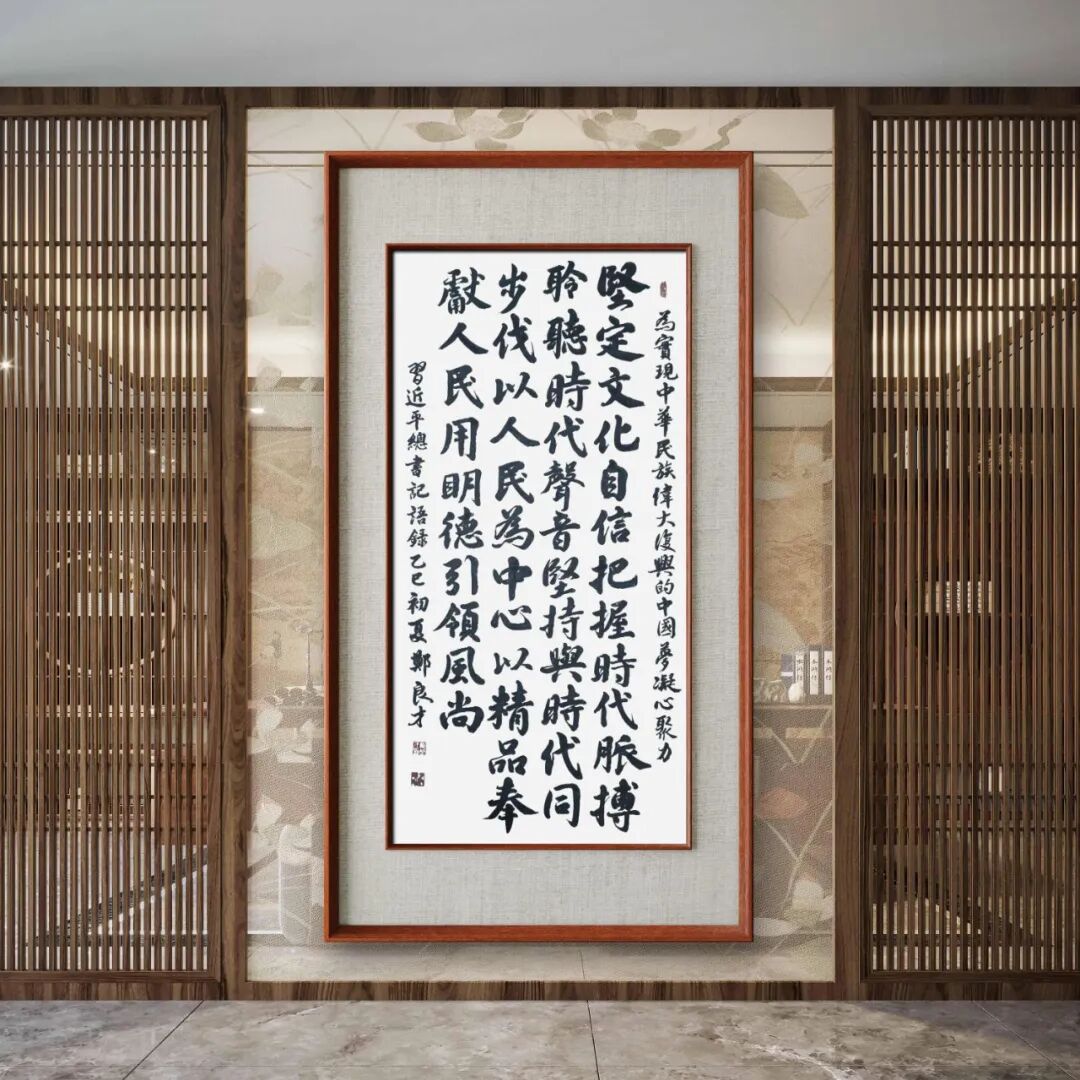 為實現中華民族偉大復興的中國夢凝心聚力
堅定文化自信把握時代脈搏
聆聽時代聲音堅持與時代同
步伐以人民為中心以精品奉
獻人民用明德引領風尚
習近平總書記語錄乙巳初夏鄭良才